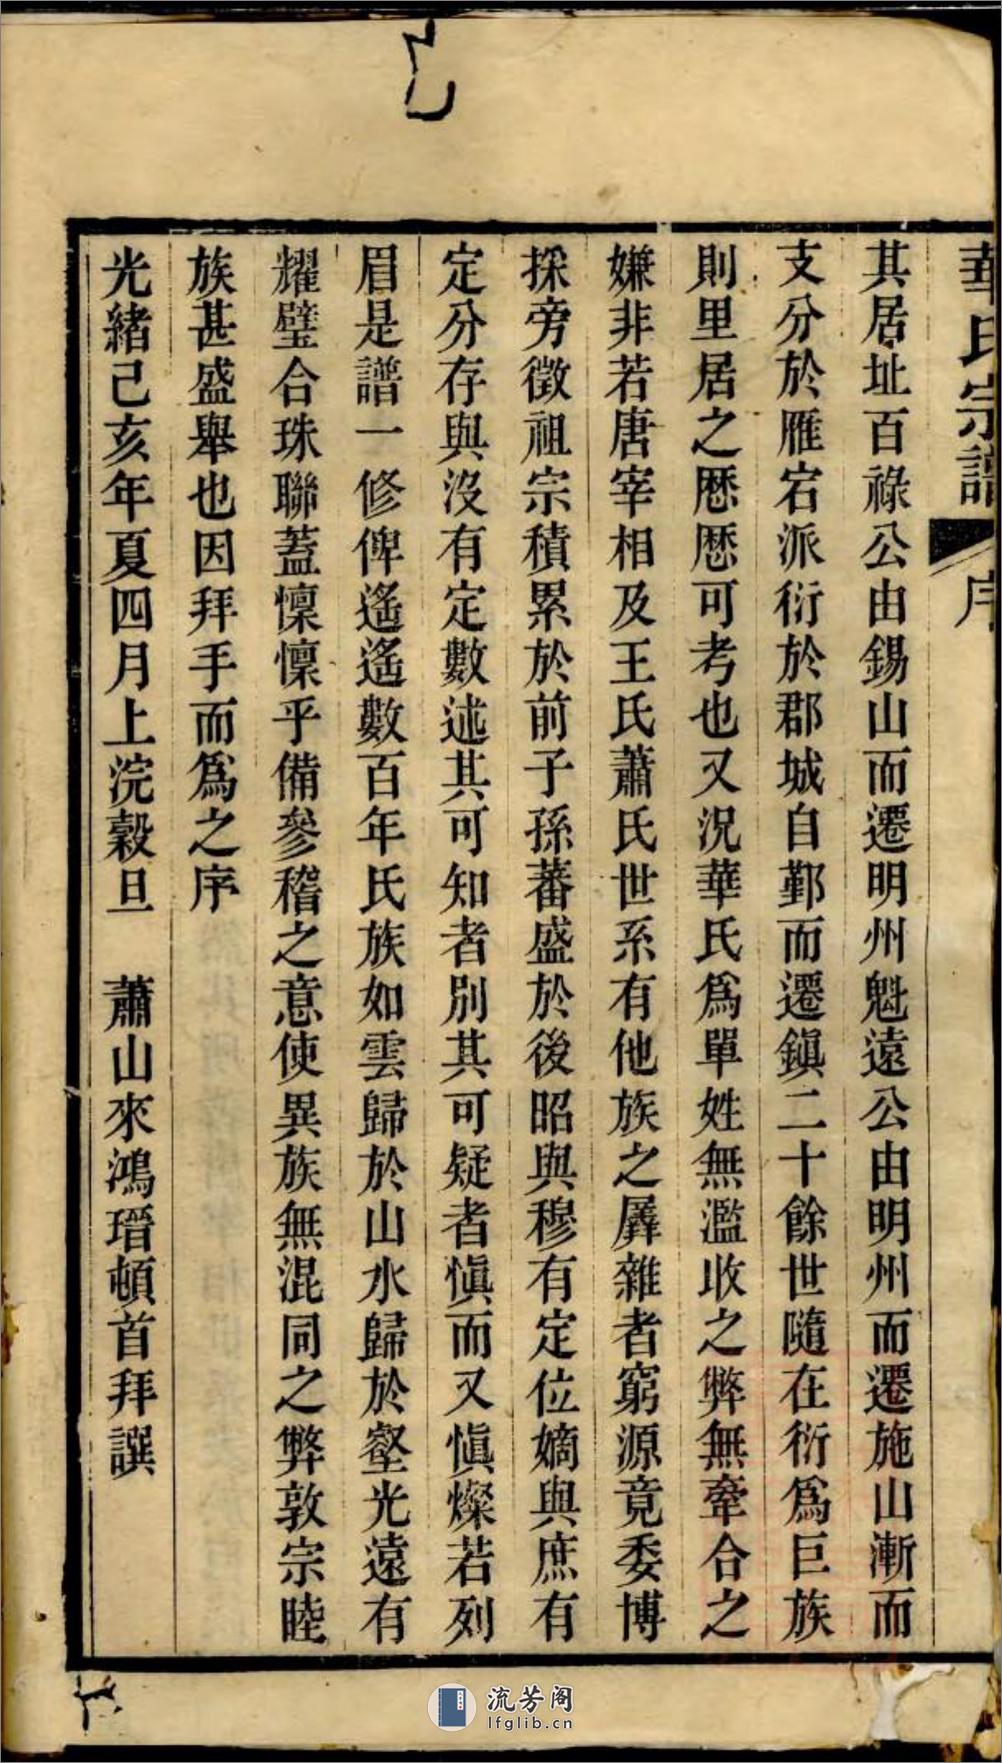 華氏宗譜 序
其居址百祿公由錫山而遷明州魁遠公由明州而遷施山漸而
支分於雁宕派衍於郡城自鄞而遷鎭二十餘世隨在衍爲巨族
則里居之厯厯可考也又况華氏爲單姓無濫收之弊無牽合之
嫌非若唐宰相及王氏蕭氏世系有他族之羼雜者窮源竟委博
採旁徵祖宗積累於前子孫蕃盛於後昭與穆有定位嫡與庶有
定分存與沒有定數述其可知者別其可疑者愼而又愼燦若列
眉是譜一修俾遙遙數百年氏族如雲歸於山水歸於壑光遠有
耀璧合珠聯蓋懍懍乎備參稽之意使異族無混同之弊敦宗睦
族甚盛舉也因拜手而爲之序
光緒己亥年夏四月上浣穀旦 蕭山來鴻瑨頓首拜譔
流芳阁
lfglib.cn